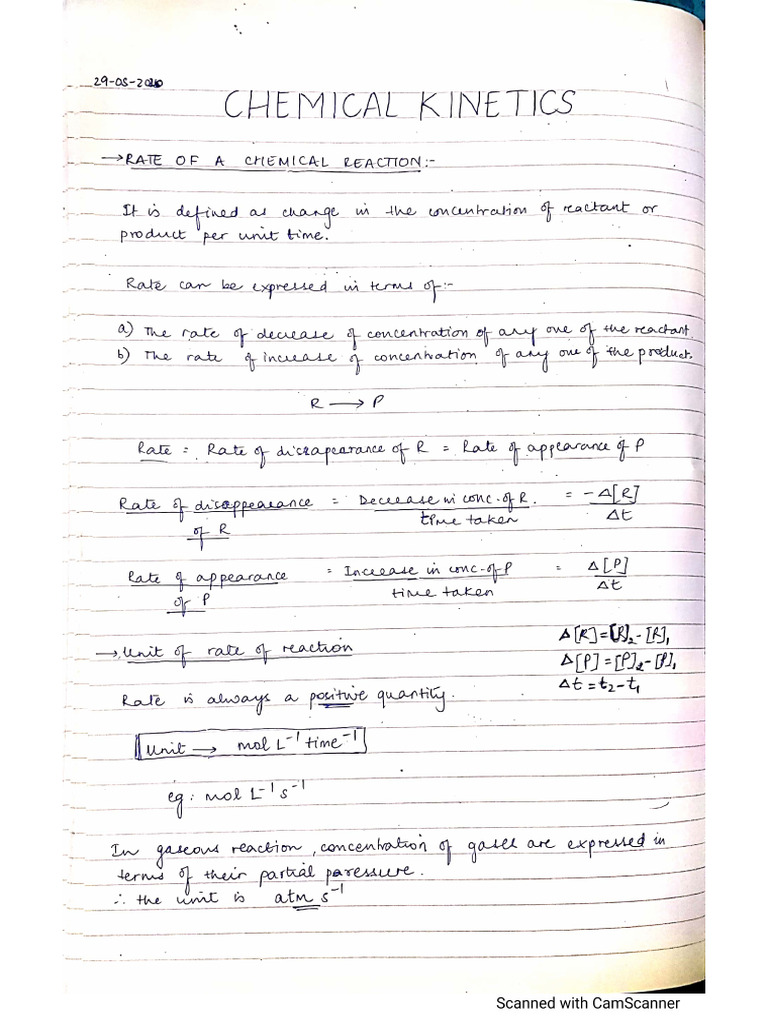 29-05-2020
CHEMICAL KINETICS
→ RATE OF A CHEMICAL REACTION:-
It is defined as change in the concentration of reactant or
product per unit time.
Rate can be expressed in terms of:-
a) The rate of decrease of concentration of any one of the reactant.
b) The rate of increase of concentration of any one of the product.
R → P
Rate = Rate of dissapearance of R = Rate of appearance of P
Rate of disappearance of R = Decrease in conc. of R. / time taken = -Δ[R] / Δt
Rate of appearance of P = Increase in conc. of P / time taken = Δ[P] / Δt
→ Unit of rate of reaction
Δ[R] = [R]₂ - [R]₁
Δ[P] = [P]₂ - [P]₁
Δt = t₂ - t₁
Rate is always a positive quantity.
Unit → mol L⁻¹ time⁻¹
eg: mol L⁻¹ s⁻¹
In gaseous reaction, concentration of gases are expressed in
terms of their partial paressure.
∴ the unit is atm s⁻¹
Scanned with CamScanner